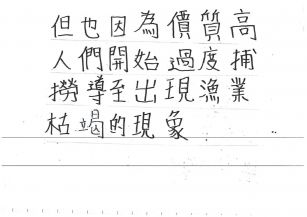 但也因為價質高
人們開始過度捕
撈導至出現漁業
枯竭的現象